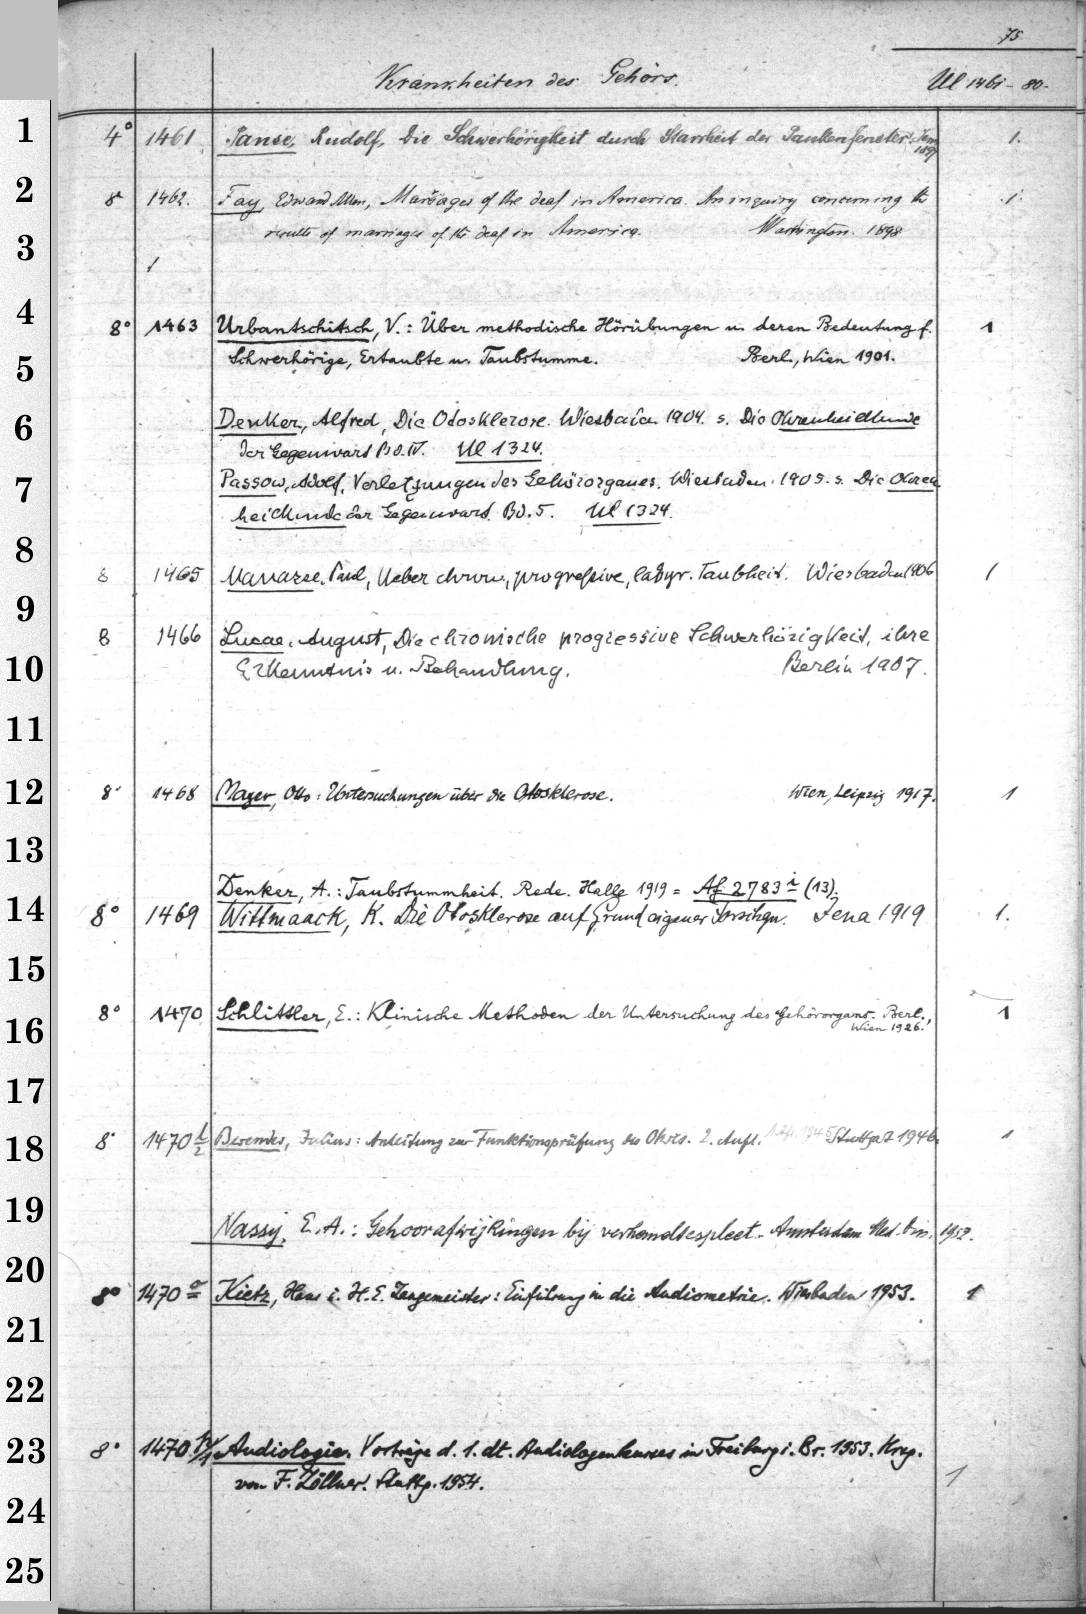 75
Krankheiten des Gehörs. Ul 1461-80.
1
4° 1461 Panse, Rudolf, Die Schwerhörigkeit durch Starrheit der Paukenfenster. Jena 1897 1.
2
8° 1462. Fay, Edward Allen, Marriages of the deaf in America. An inquiry concerning the 1.
results of marriages of the deaf in America. Washington. 1898
3
1
4
8° 1463 Urbantschitsch, V.: Über methodische Hörübungen u. deren Bedeutung f. 1
5
Schwerhörige, Ertaubte u. Taubstumme. Berl., Wien 1901.
6
Denker, Alfred, Die Otosklerose. Wiesbaden 1904. s. Die Ohrenheilkunde
der Gegenwart Bd. IV. Ul 1324.
7
Passow, Adolf, Verletzungen des Gehörorganes. Wiesbaden. 1905. s. Die Ohren
heilkunde der Gegenwart. Bd. 5. Ul 1324.
8
8 1465 Manasse, Paul, Ueber chron., progressive, labyr. Taubheit. Wiesbaden 1906 1
9
8 1466 Lucae, August, Die chronische progressive Schwerhörigkeit, ihre
10
Erkenntnis u. Behandlung. Berlin 1907.
11
12
8° 1468 Mayer, Otto: Untersuchungen über die Otosklerose. Wien, Leipzig 1917. 1
13
Denker, A.: Taubstummheit. Rede. Halle 1919 = Af 2783 i (13).
14
8° 1469 Wittmaack, K. Die Otosklerose auf Grund eigener Forschgn. Jena 1919 1.
15
8° 1470 Schlittler, E.: Klinische Methoden der Untersuchung des Gehörorgans. Berl., 1
16
Wien 1926.
17
18
8° 1470 Berendes, Julius: Anleitung zur Funktionsprüfung des Ohres. 2. Aufl. Stuttgart 1946. 1
19
Nassy, E. A.: Gehoorafwijkingen bij verhemeltespleet. Amsterdam Med. Diss. 1952.
20
8° 1470 a Kietz, Hans u. H. E. Zangemeister: Einführung in die Audiometrie. Wiesbaden 1953. 1
21
22
23
8° 1470 b/1 Audiologie. Vorträge d. 1. dt. Audiologenkurses in Freiburg i. Br. 1953. Hrsg.
von F. Zöllner. Stuttg. 1954. 1
24
25